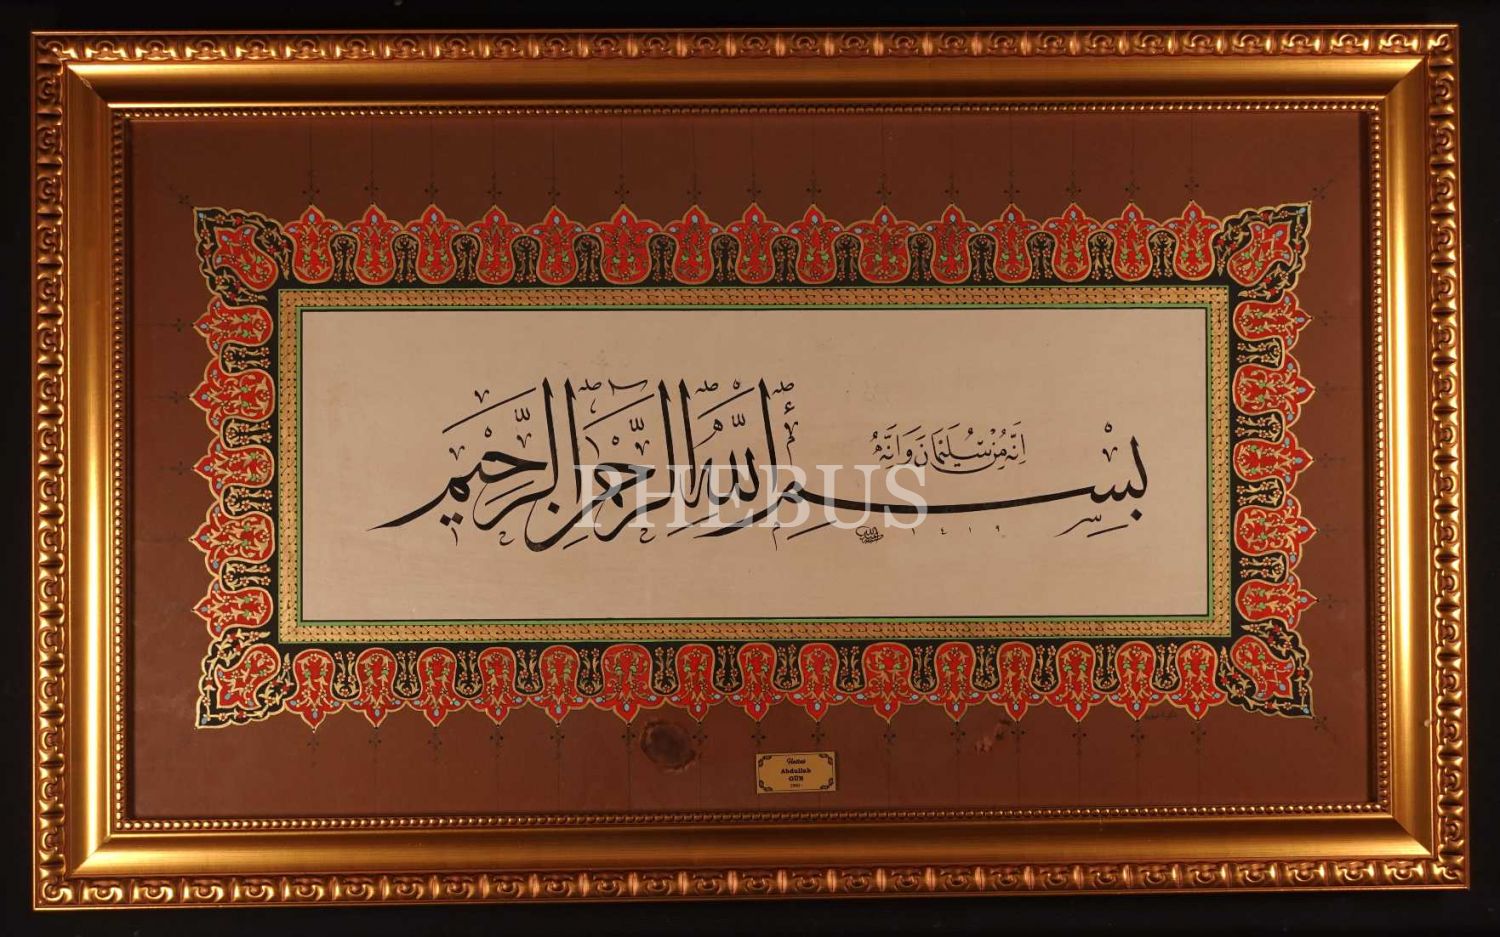 إنه من سليمان وإنه
بسم الله الرحمن الرحيم
١٤١٩
PHEBUS
Hattat
Abdullah
GÜN